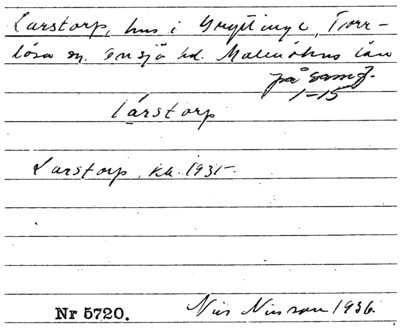 Larstorp, hus i Gryttinge, Torr-
lösa sn. Onsjö hd. Malmöhus län
på samf.
1-15
lárstorp
Larstorp, kb. 1931-
Nr 5720. Nils Nilsson 1936.